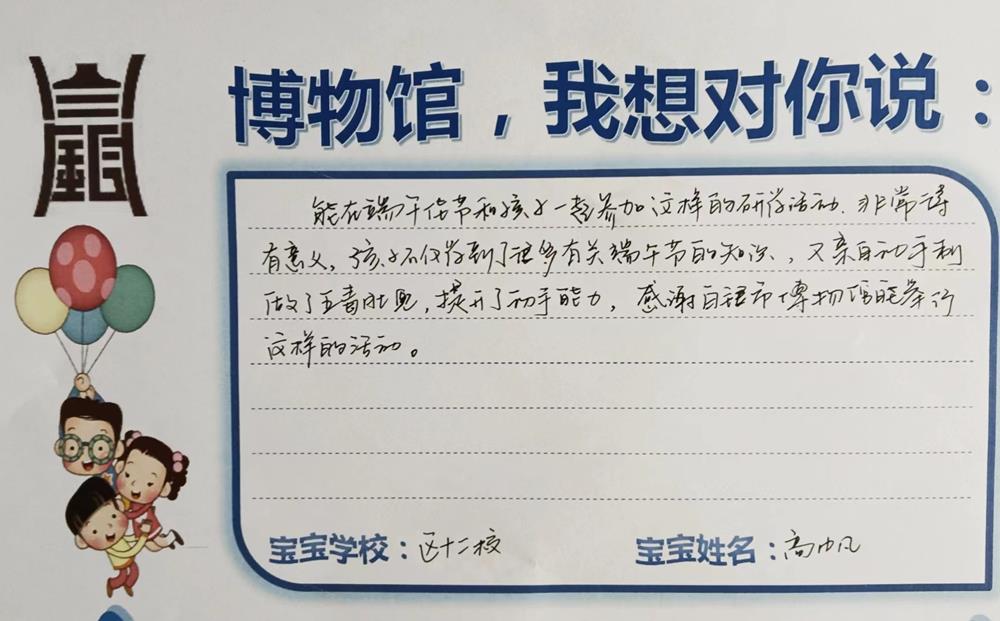 博物馆，我想对你说：
能在端午佳节和孩子一起参加这样的研学活动，非常得
有意义，孩子不仅得到了很多有关端午节的知识，又亲自动手制
做了五毒肚兜，提升了动手能力，感谢自贡市博物馆能举行
这样的活动。
宝宝学校：区十二校
宝宝姓名：高